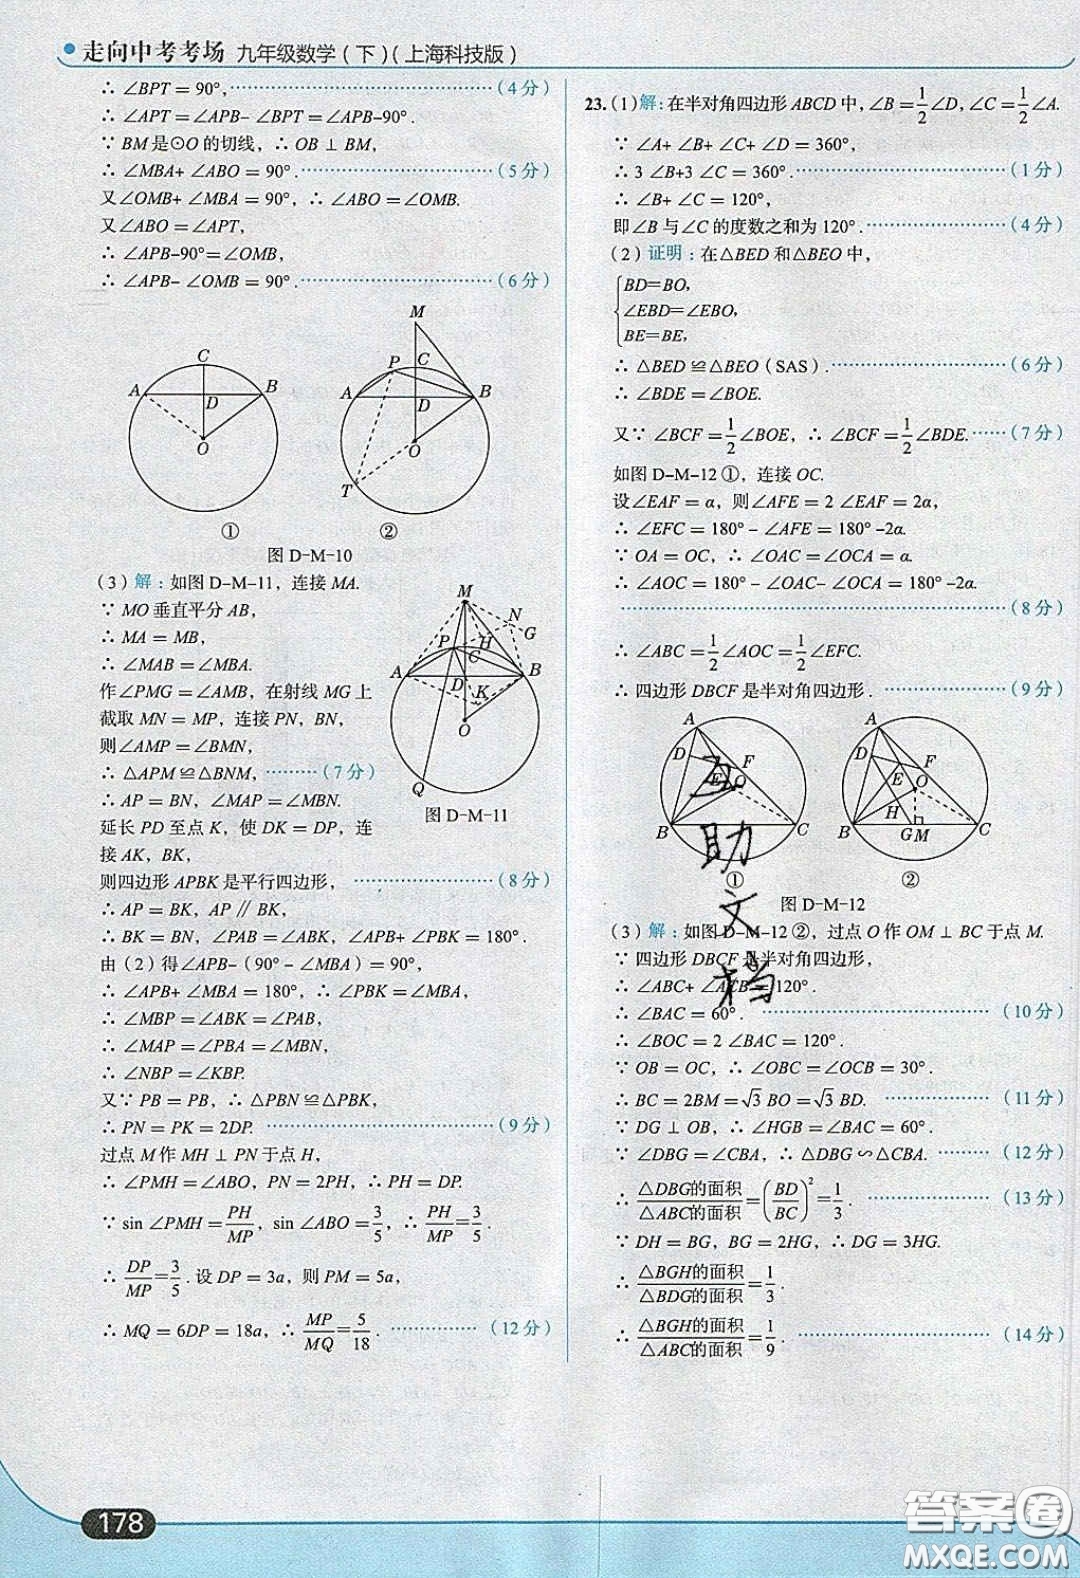 走向中考考场 九年级数学(下)(上海科技版)
∴ ∠BPT = 90°, (4分)
∴ ∠APT = ∠APB- ∠BPT = ∠APB-90°.
∵ BM是⊙O的切线, ∴ OB ⊥ BM,
∴ ∠MBA+ ∠ABO = 90°. (5分)
又∠OMB+ ∠MBA = 90°, ∴ ∠ABO = ∠OMB.
又∠ABO = ∠APT,
∴ ∠APB-90°=∠OMB,
∴ ∠APB- ∠OMB = 90°. (6分)
C
A
B
D
O
①
M
P
C
A
B
D
O
T
②
图 D-M-10
(3) 解: 如图 D-M-11, 连接 MA.
∵ MO 垂直平分 AB,
∴ MA = MB,
∴ ∠MAB = ∠MBA.
作∠PMG = ∠AMB, 在射线 MG 上
截取 MN = MP, 连接 PN, BN,
则∠AMP = ∠BMN,
∴ △APM ≌ △BNM, (7分)
∴ AP = BN, ∠MAP = ∠MBN.
延长 PD 至点 K, 使 DK = DP, 连
接 AK, BK,
M
N
G
P
H
C
A
B
D
K
O
Q
图 D-M-11
则四边形 APBK 是平行四边形, (8分)
∴ AP = BK, AP ∥ BK,
∴ BK = BN, ∠PAB = ∠ABK, ∠APB+ ∠PBK = 180°.
由 (2) 得∠APB-(90° - ∠MBA) = 90°,
∴ ∠APB+ ∠MBA = 180°, ∴ ∠PBK = ∠MBA,
∴ ∠MBP = ∠ABK = ∠PAB,
∴ ∠MAP = ∠PBA = ∠MBN,
∴ ∠NBP = ∠KBP.
又∵ PB = PB, ∴ △PBN ≌ △PBK,
∴ PN = PK = 2DP. (9分)
过点 M 作 MH ⊥ PN 于点 H,
∴ ∠PMH = ∠ABO, PN = 2PH, ∴ PH = DP.
∵ sin ∠PMH = PH/MP, sin ∠ABO = 3/5, ∴ PH/MP = 3/5.
∴ DP/MP = 3/5. 设 DP = 3a, 则 PM = 5a,
∴ MQ = 6DP = 18a, ∴ MP/MQ = 5/18. (12分)
23. (1) 解: 在半对角四边形 ABCD 中, ∠B = 1/2 ∠D, ∠C = 1/2 ∠A.
∵ ∠A+ ∠B+ ∠C+ ∠D = 360°,
∴ 3 ∠B+3 ∠C = 360°. (1分)
∴ ∠B+ ∠C = 120°,
即∠B 与∠C 的度数之和为 120°. (4分)
(2) 证明: 在△BED 和△BEO 中,
BD=BO,
∠EBD=∠EBO,
BE=BE,
∴ △BED ≌ △BEO (SAS). (6分)
∴ ∠BDE = ∠BOE.
又∵ ∠BCF = 1/2 ∠BOE, ∴ ∠BCF = 1/2 ∠BDE. (7分)
如图 D-M-12 ①, 连接 OC.
设∠EAF = α, 则∠AFE = 2 ∠EAF = 2α,
∴ ∠EFC = 180° - ∠AFE = 180° -2α.
∵ OA = OC, ∴ ∠OAC = ∠OCA = α.
∴ ∠AOC = 180° - ∠OAC- ∠OCA = 180° -2α.
(8分)
∴ ∠ABC = 1/2 ∠AOC = 1/2 ∠EFC.
∴ 四边形 DBCF 是半对角四边形. (9分)
A
D
F
E
O
B
C
①
A
D
F
E
O
H
B
G
M
C
②
互助文档
图 D-M-12
(3) 解: 如图 D-M-12 ②, 过点 O 作 OM ⊥ BC 于点 M.
∵ 四边形 DBCF 是半对角四边形,
∴ ∠ABC+ ∠ACB = 120°.
∴ ∠BAC = 60°. (10分)
∴ ∠BOC = 2 ∠BAC = 120°.
∵ OB = OC, ∴ ∠OBC = ∠OCB = 30°.
∴ BC = 2BM = √3 BO = √3 BD. (11分)
∵ DG ⊥ OB, ∴ ∠HGB = ∠BAC = 60°.
∵ ∠DBG = ∠CBA, ∴ △DBG ∽ △CBA. (12分)
∴ △DBG的面积/△ABC的面积 = (BD/BC)² = 1/3. (13分)
∵ DH = BG, BG = 2HG, ∴ DG = 3HG.
∴ △BGH的面积/△BDG的面积 = 1/3.
∴ △BGH的面积/△ABC的面积 = 1/9. (14分)
178
答案圈
MXQE.COM